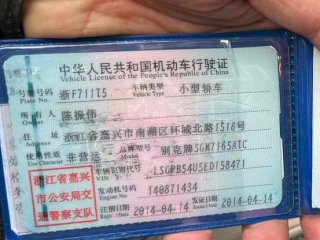 中华人民共和国机动车行驶证
Vehicle License of the People's Republic of China
号牌号码 浙F711T5 车辆类型 小型轿车
Plate No. Vehicle Type
所有人 陈振伟
Owner
浙江省嘉兴市南湖区环城北路1518号
使用性质 非营运 品牌型号 别克牌SGM7165ATC
Use Character
浙江省嘉兴市公安局交通警察支队
车辆识别代号 LSGPB54U5ED158471
VIN
发动机号码 140871434
Engine No.
注册日期 2014-04-14 发证日期 2014-04-14